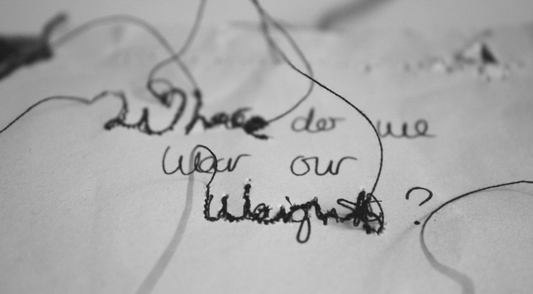 Where do we
wear our
Weight?